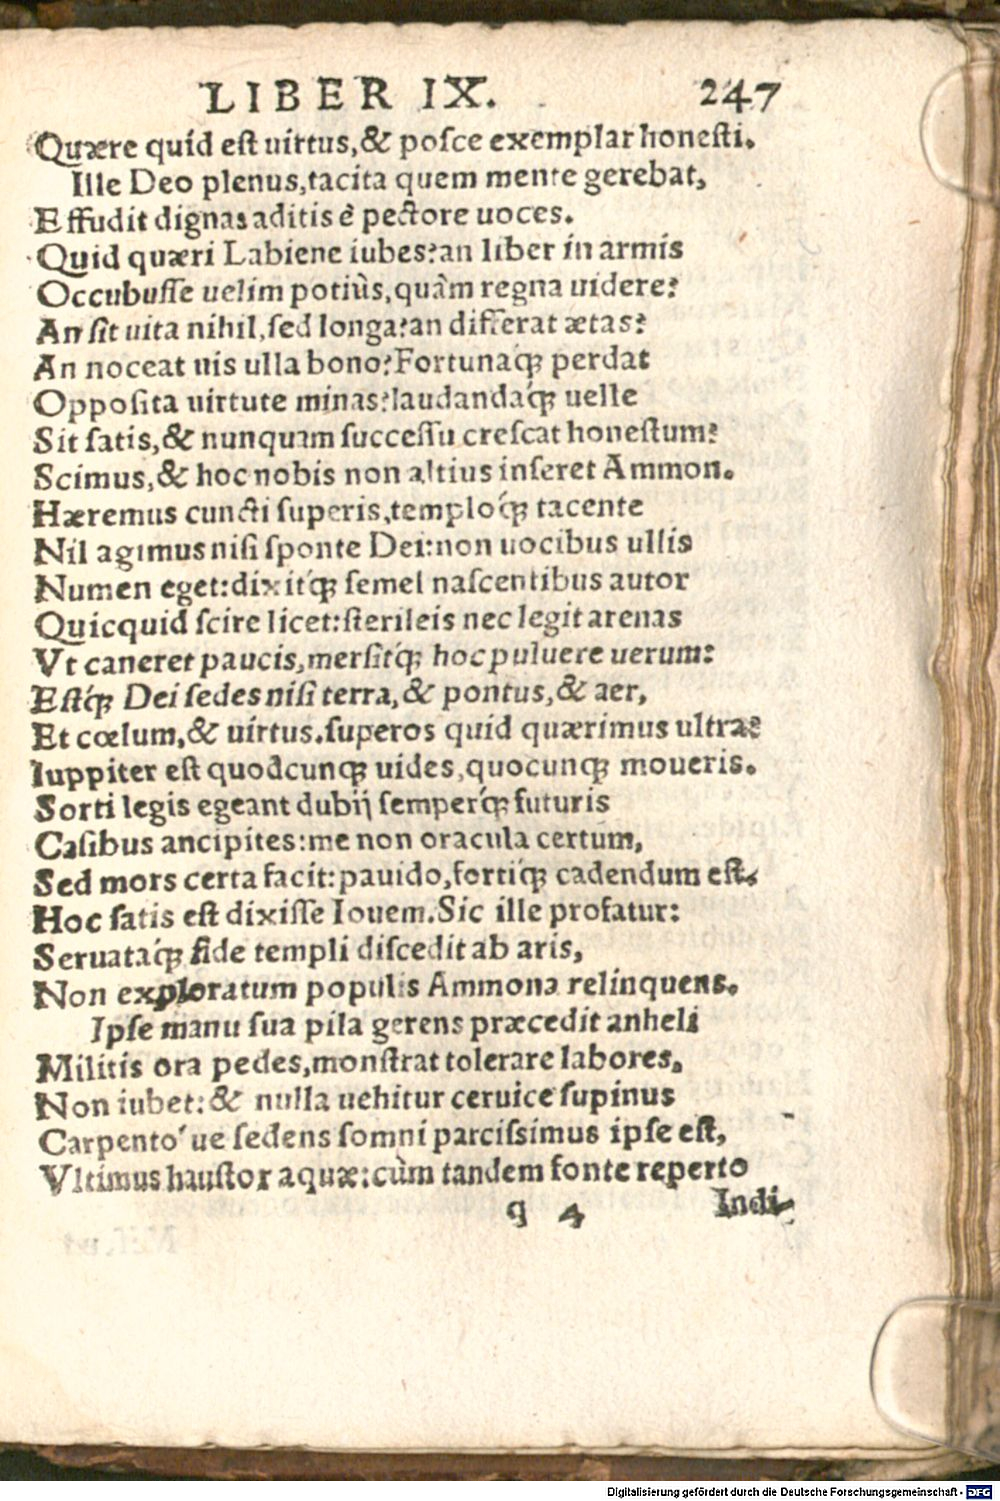 LIBER IX. 247
Quære quid eſt uirtus,& poſce exemplar honeſti.
Ille Deo plenus,tacita quem mente gerebat,
Effudit dignas aditis è pectore uoces.
Quid quæri Labiene iubes?an liber in armis
Occubuſſe uelim potiùs,quàm regna uidere?
An ſit uita nihil,ſed longa?an differat ætas?
An noceat uis ulla bono?Fortunaq́ꝫ perdat
Oppoſita uirtute minas?laudandaq́ꝫ uelle
Sit ſatis,& nunquam ſucceſſu creſcat honeſtum?
Scimus,& hoc nobis non altius inſeret Ammon.
Hæremus cuncti ſuperis,temploq́ꝫ tacente
Nil agimus niſi ſponte Dei:non uocibus ullis
Numen eget:dixitq́ꝫ ſemel naſcentibus autor
Quicquid ſcire licet:ſterileis nec legit arenas
Vt caneret paucis,merſitq́ꝫ hoc puluere uerum:
Eſtq́ꝫ Dei ſedes niſi terra,& pontus,& aer,
Et cœlum,& uirtus.ſuperos quid quærimus ultra?
Iuppiter eſt quodcunqꝫ uides,quocunqꝫ moueris.
Sorti legis egeant dubij ſemperq́ꝫ futuris
Caſibus ancipites:me non oracula certum,
Sed mors certa facit:pauido,fortiq́ꝫ cadendum eſt.
Hoc ſatis eſt dixiſſe Iouem.Sic ille profatur:
Seruataq́ꝫ fide templi diſcedit ab aris,
Non exploratum populis Ammona relinquens.
Ipſe manu ſua pila gerens præcedit anheli
Militis ora pedes,monſtrat tolerare labores,
Non iubet:& nulla uehitur ceruice ſupinus
Carpento´ue ſedens ſomni parciſsimus ipſe eſt,
Vltimus hauſtor aquæ:cùm tandem fonte reperto
q 4 Indi-
Digitalisierung gefördert durch die Deutsche Forschungsgemeinschaft - DFG